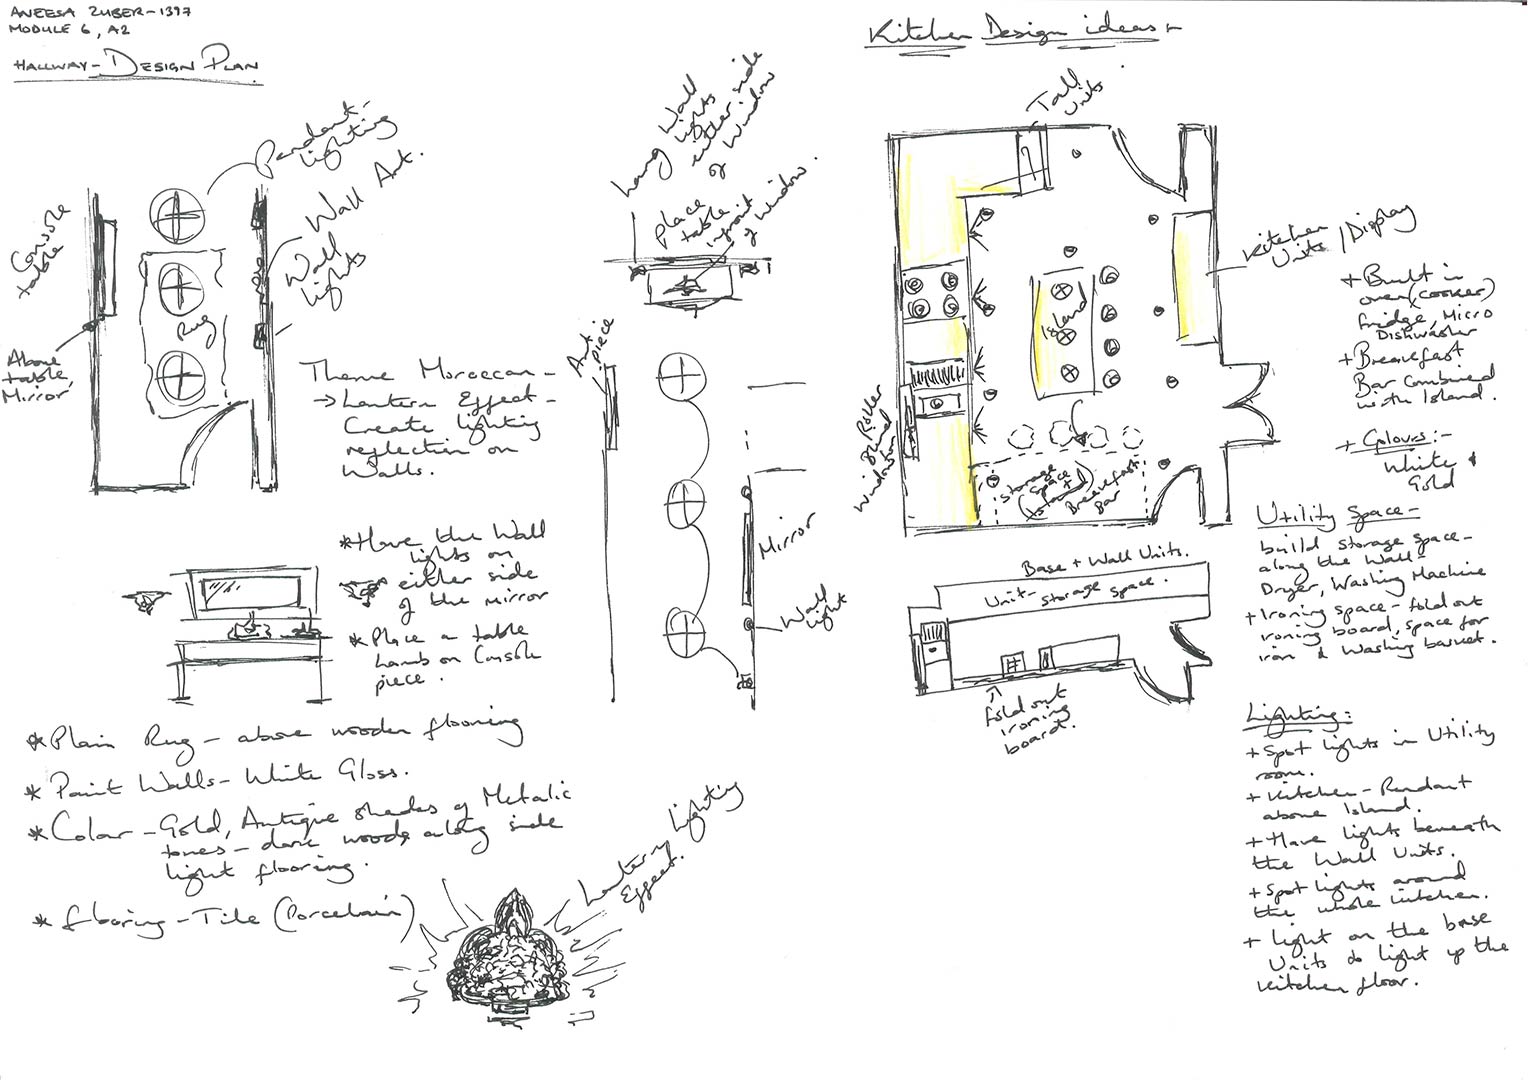 ANEESA ZUBER-1397
MODULE 6, A2
HALLWAY - DESIGN PLAN
Pendant-
lighting
Wall Art.
Wall
lights
Console
table
Above
table,
Mirror
Rug
Theme Moroccan -
→ Lantern Effect -
Create lighting
reflection on
Walls.
* Have the Wall
lights on
either side
of the mirror
* Place a table
lamb on Console
piece.
* Plain Rug - above wooden flooring
* Paint Walls - White Gloss.
* Colour - Gold, Antique shades of Metalic
tones - dark woods along side
light flooring.
* flooring - Tile (Porcelain)
Lantern lighting
Effect.
hang Wall
lights
either side
of Window
Place
table
infront
of Window.
Art
piece
Mirror
Wall
light
Kitchen Design ideas:-
Tall
Units
Kitchen
Units / Display
Island
Roller
Blind
Window
Storage
Space
(Island)
Breakfast
Bar
+ Built in
oven (cooker)
fridge, Micro
Dishwasher
+ Breakfast
Bar Combined
with Island.
+ Colours:-
White &
Gold
Utility Space -
build storage space -
along the Wall -
Dryer, Washing Machine
+ Ironing space - fold out
ironing board, space for
iron & Washing basket.
Base + Wall Units.
Unit - storage space.
fold out
ironing
board.
Lighting:
+ Spot lights in Utility
room.
+ Kitchen - Pendant
above Island.
+ Have lights beneath
the Wall Units.
+ Spot lights around
the whole kitchen.
+ light on the base
Units to light up the
kitchen floor.